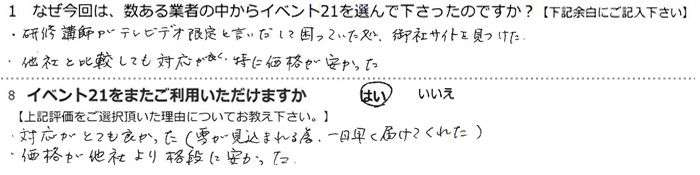 1 なぜ今回は、数ある業者の中からイベント21を選んで下さったのですか？【下記余白にご記入下さい】
・研修講師がテレビデオ限定と言いだして困っていた処、御社サイトを見つけた.
・他社と比較しても対応が良く、特に価格が安かった
8 イベント21をまたご利用いただけますか はい いいえ
【上記評価をご選択頂いた理由についてお教え下さい。】
・対応がとても良かった（雪が見込まれる為、一日早く届けてくれた）
・価格が他社より格段に安かった.